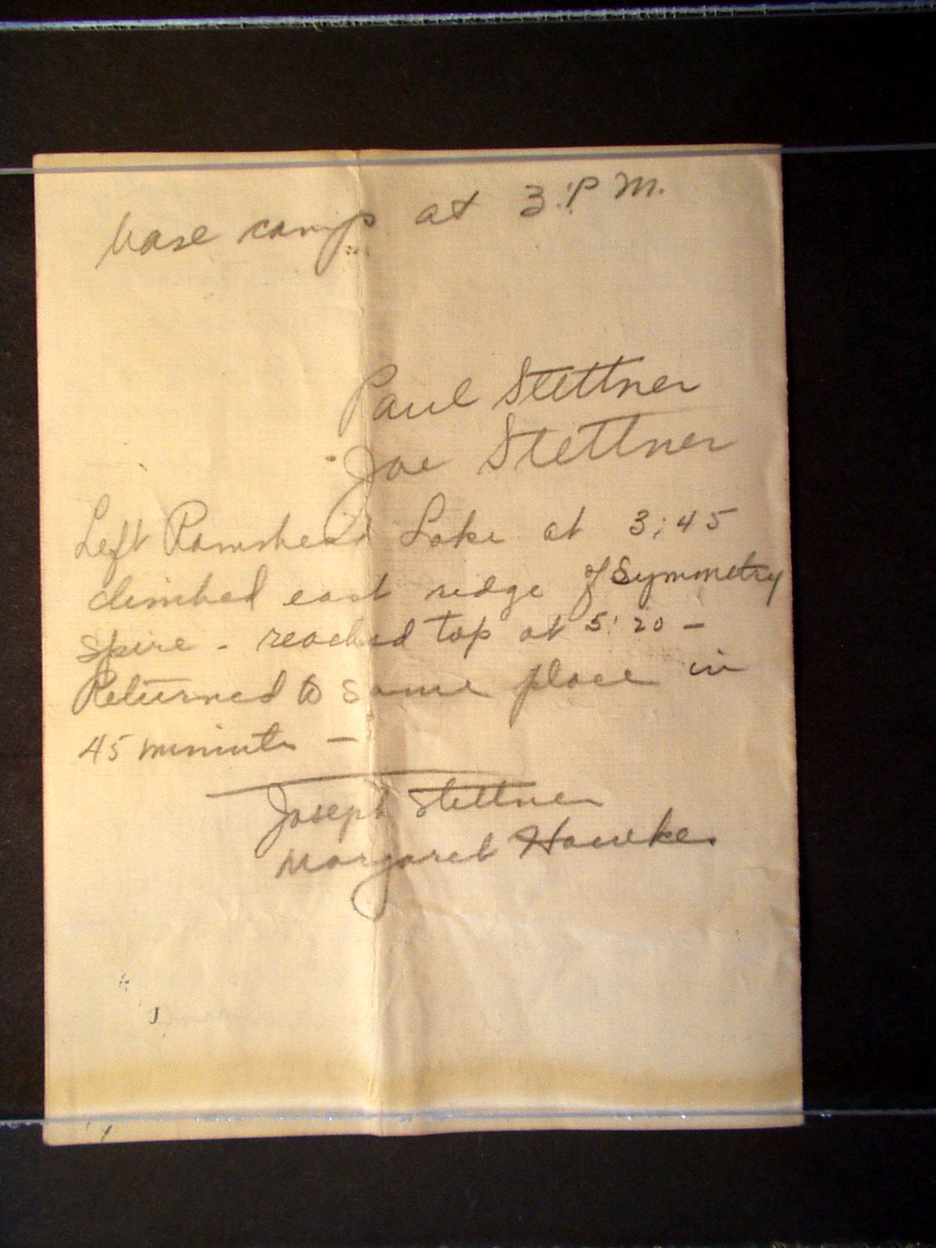 base camp at 3 P.M.
Paul Stettner
Joe Stettner
Left Ramshead Lake at 3:45
climbed east ridge of Symmetry
Spire - reached top at 5:20 -
Returned to same place in
45 minute -
Joseph Stettner
Margaret Hawkes